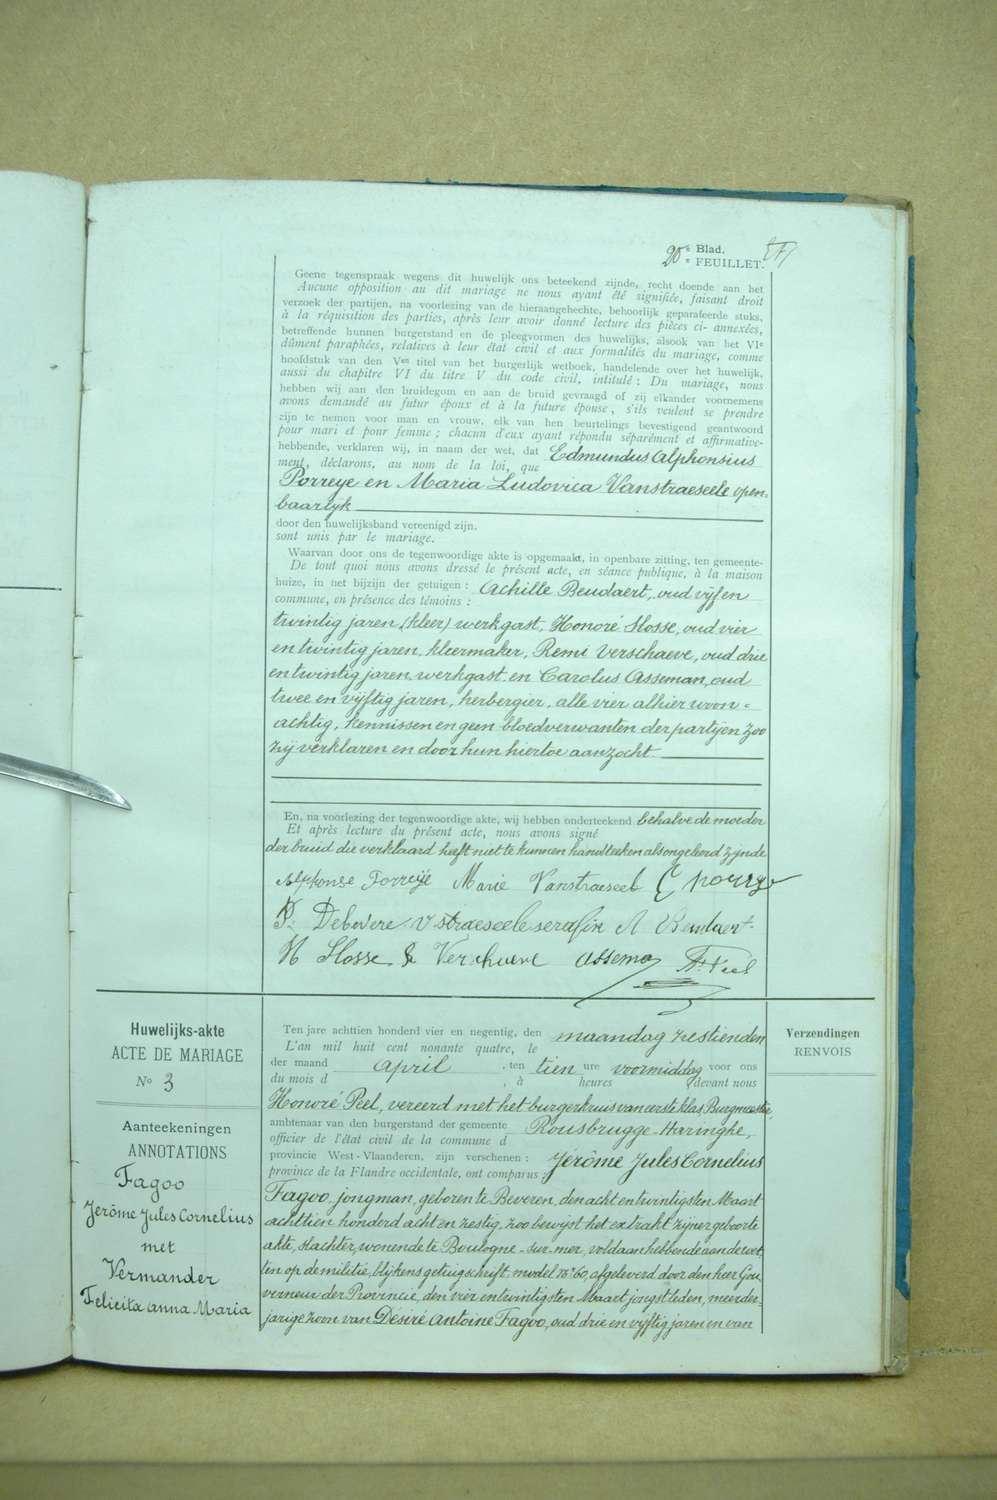 20e Blad.
e FEUILLET.
Geene tegenspraak wegens dit huwelijk ons beteekend zijnde, recht doende aan het
Aucune opposition au dit mariage ne nous ayant été signifiée, faisant droit
verzoek der partijen, na voorlezing van de hieraangehechte, behoorlijk geparafeerde stuks,
à la réquisition des parties, après leur avoir donné lecture des pièces ci-annexées,
betreffende hunnen burgerstand en de pleegvormen des huwelijks, alsook van het VIe
dûment paraphées, relatives à leur état civil et aux formalités du mariage, comme
hoofdstuk van den Ven titel van het burgerlijk wetboek, handelende over het huwelijk,
aussi du chapitre VI du titre V du code civil, intitulé : Du mariage, nous
hebben wij aan den bruidegom en aan de bruid gevraagd of zij elkander voornemens
avons demandé au futur époux et à la future épouse, s'ils veulent se prendre
zijn te nemen voor man en vrouw, elk van hen beurtelings bevestigend geantwoord
pour mari et pour femme ; chacun d'eux ayant répondu séparément et affirmative-
hebbende, verklaren wij, in naam der wet, dat Edmundus Alphonsius
ment, déclarons, au nom de la loi, que
Porreye en Maria Ludovica Vanstraeseele open-
baarlyk
door den huwelijksband vereenigd zijn.
sont unis par le mariage.
Waarvan door ons de tegenwoordige akte is opgemaakt, in openbare zitting, ten gemeente-
De tout quoi nous avons dressé le présent acte, en séance publique, à la maison
huize, in net bijzijn der getuigen : Achille Beudaert, oud vijf en
commune, en présence des témoins :
twintig jaren (kleer) werkgast, Honoré Hosse, oud vier
en twintig jaren, kleermaker, Remi Verschaeve, oud drie
en twintig jaren werkgast en Carolus Asseman, oud
twee en vijftig jaren, herbergier, alle vier alhier woon=
achtig, kennissen en geen bloedverwanten der partijen zoo
zij verklaren en door hun hiertoe aanzocht.
En, na voorlezing der tegenwoordige akte, wij hebben onderteekend behalve de moeder
Et après lecture du présent acte, nous avons signé
der bruid die verklaard heeft niet te kunnen handteeken als ongeleerd zijnde
Alphonse Porreije Marie Vanstraeseel
D. Debevere Vstraeseele serafin A Beudaert
H Hosse R Verschaeve Asseman H. Peel
Huwelijks-akte
ACTE DE MARIAGE
No 3
Aanteekeningen
ANNOTATIONS
Fagoo
Jerôme Jules Cornelius
met
Vermander
Felicita Anna Maria
Ten jare achttien honderd vier en negentig, den maandag zestienden
L'an mil huit cent nonante quatre, le
der maand April ten tien ure voormiddag voor ons
du mois d , à heures devant nous
Honoré Peel, vereerd met het burgerkruis van eerste klas, Burgmeester,
ambtenaar van den burgerstand der gemeente Rousbrugge-Haringhe,
officier de l'état civil de la commune d
provincie West-Vlaanderen, zijn verschenen : Jerôme Jules Cornelius
province de la Flandre occidentale, ont comparus :
Fagoo, jongman, geboren te Beveren, den acht en twintigsten Maart
achttien honderd acht en zestig, zoo bewijst het extrakt zijner geboorte
akte, slachter, wonende te Boulogne-sur-mer, voldaan hebbende aan de wet-
ten op de militie, blijkens getuigschrift, model No 60, afgeleverd door den heer Gou-
verneur der Provincie, den vier en twintigsten Maart jongstleden, meerder-
jarige zoon van Désiré Antoine Fagoo, oud drie en vijftig jaren en van
Verzendingen
RENVOIS